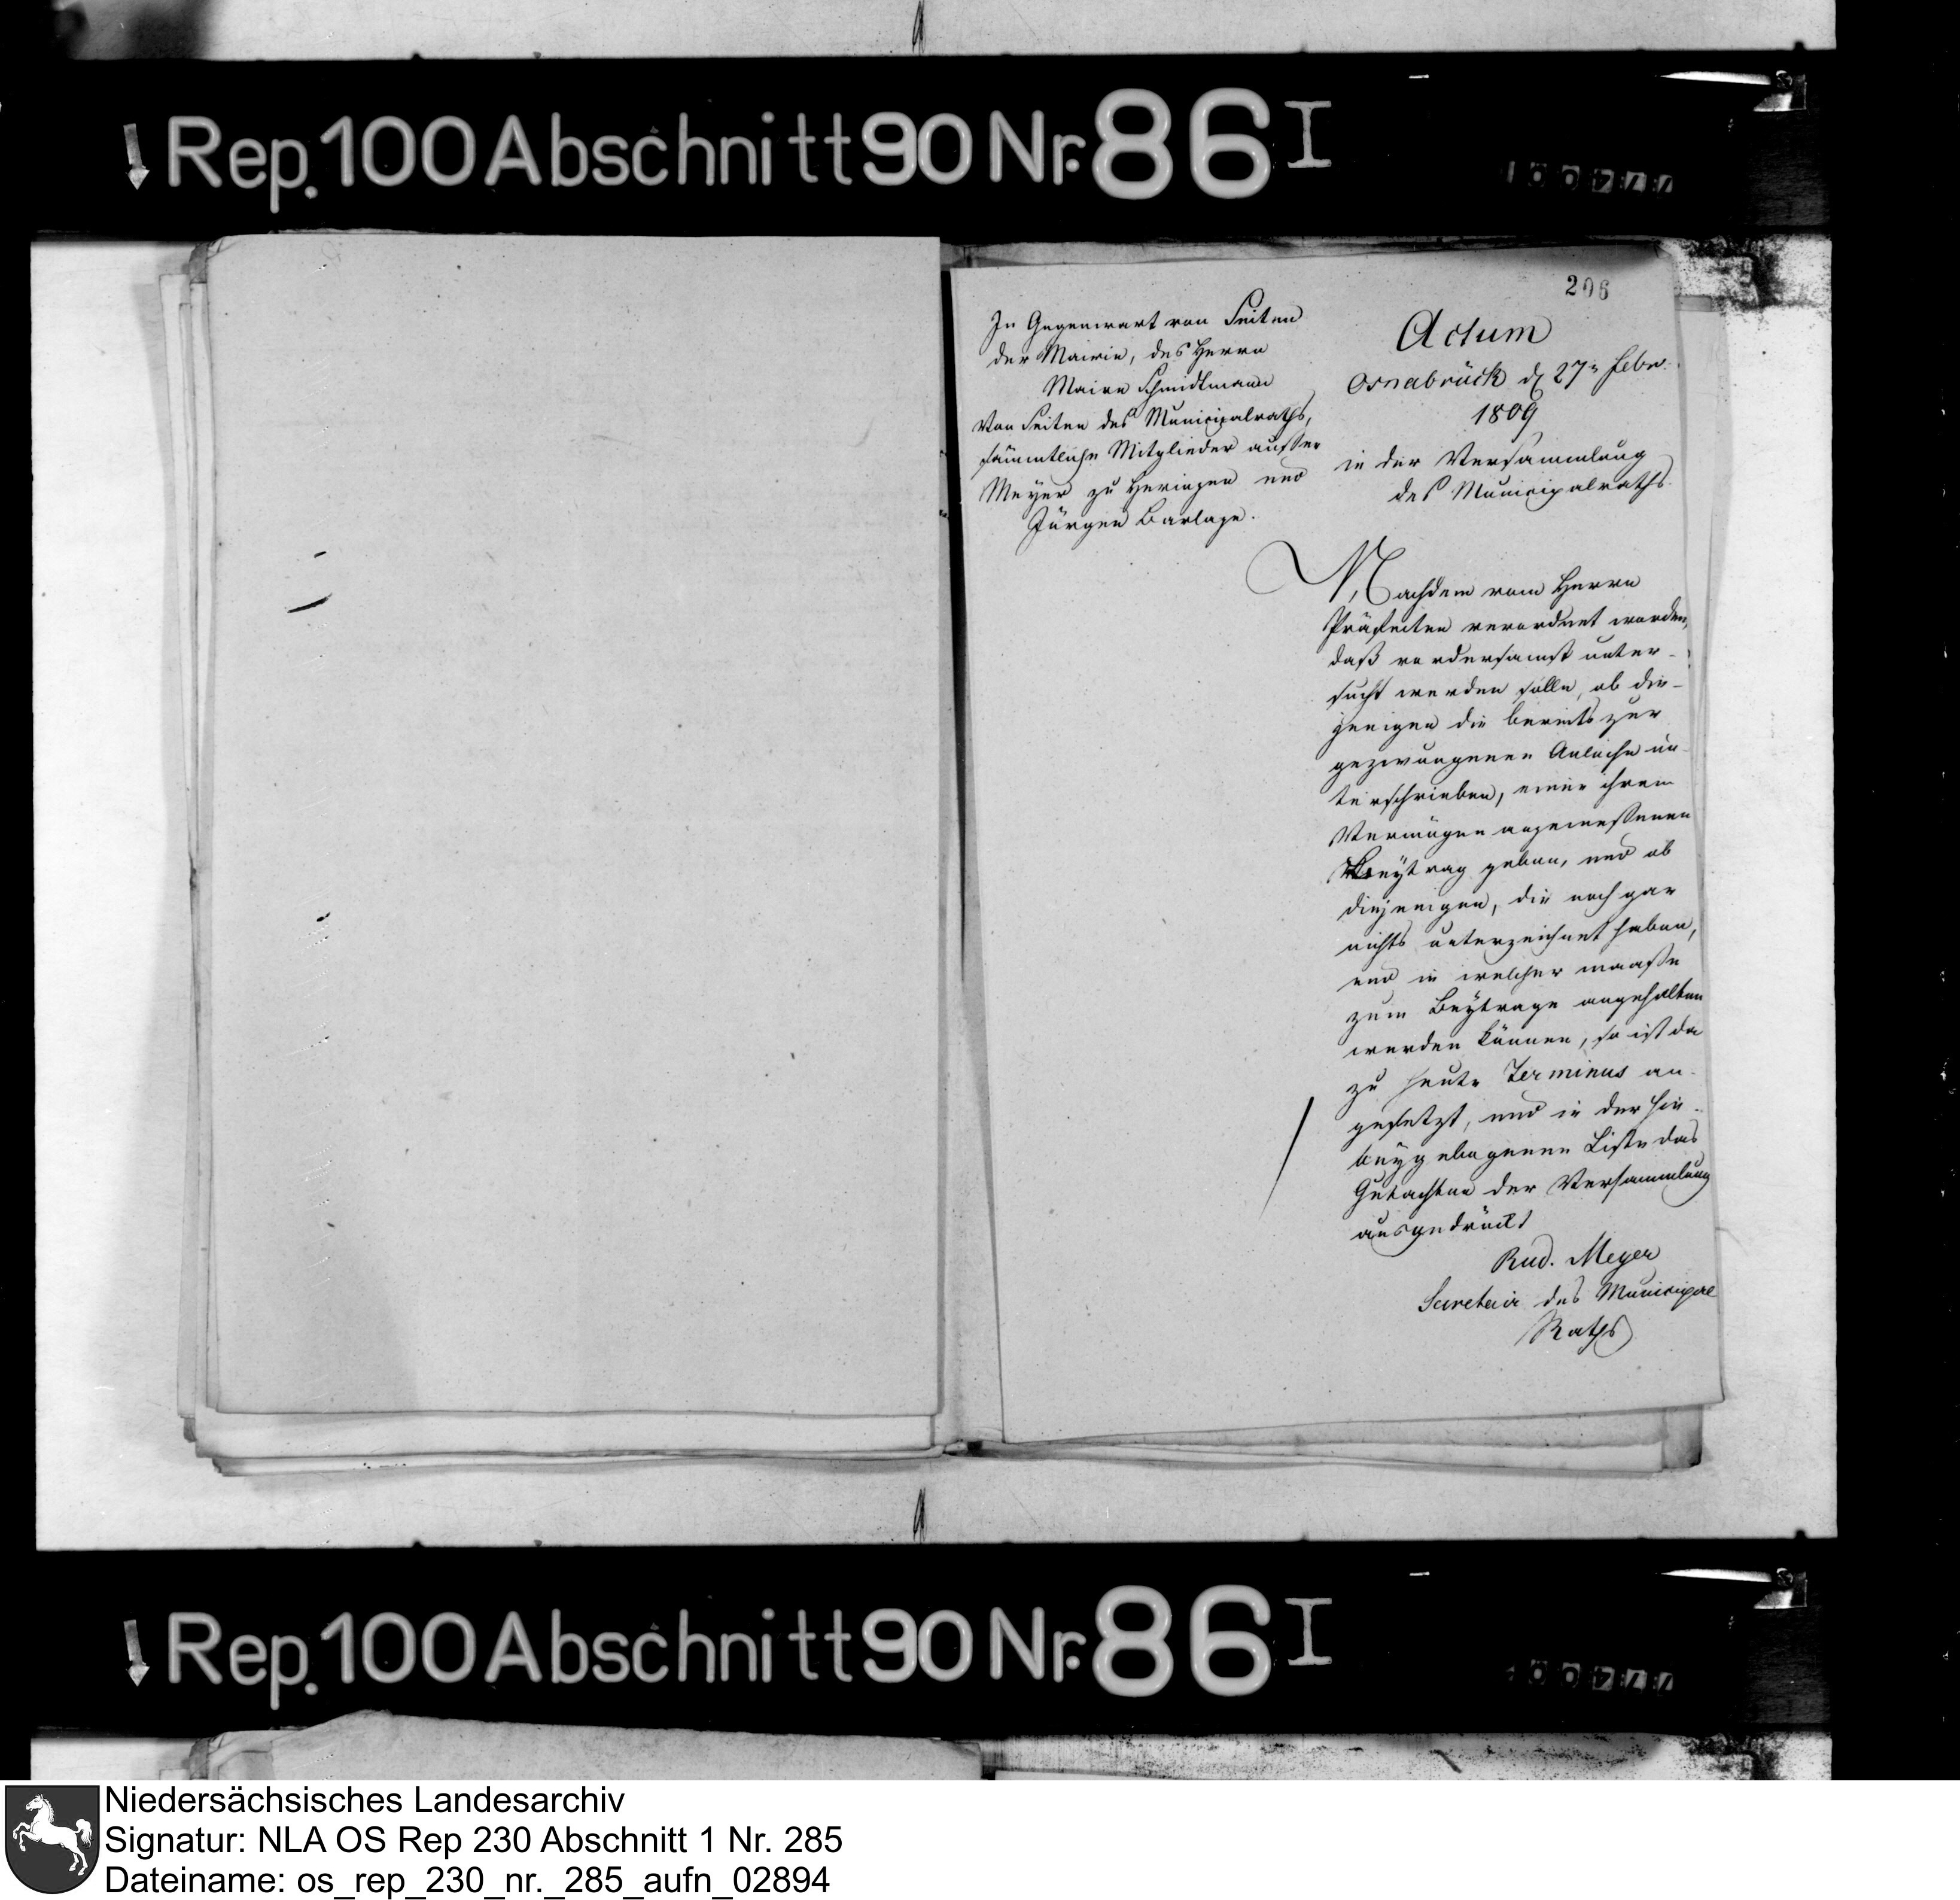 Rep. 100 Abschnitt 90 Nr. 86 I
206
In Gegenwart von Seiten
der Mairie, des Herrn
Maire Schmidtmann
Von Seiten des Municipalraths,
sämmtliche Mitglieder außer
Meyer zu Heringen und
Jürgen Barlage.
Actum
Osnabrück d 27n Febr.
1809
in der Versammlung
des Municipalraths.
Nachdem vom Herrn
Präfecten verordnet worden,
daß vordersamst unter-
sucht werden solle, ob die-
jenigen die bereits zur
gezwungenen Anleihe un-
terschrieben, einen ihrem
Vermögen angemeßenen
Beytrag geben, und ob
diejenigen, die noch gar
nichts unterzeichnet haben,
und in welcher maaße
zum Beytrage angehalten
werden können, so ist da
zu heute Terminus an-
gesetzt, und in der hie-
beygebogenen Liste das
Gutachten der Versammlung
ausgedrückt
Rud. Meyer
Secretair des Municipal
Raths
Rep. 100 Abschnitt 90 Nr. 86 I
Niedersächsisches Landesarchiv
Signatur: NLA OS Rep 230 Abschnitt 1 Nr. 285
Dateiname: os_rep_230_nr._285_aufn_02894